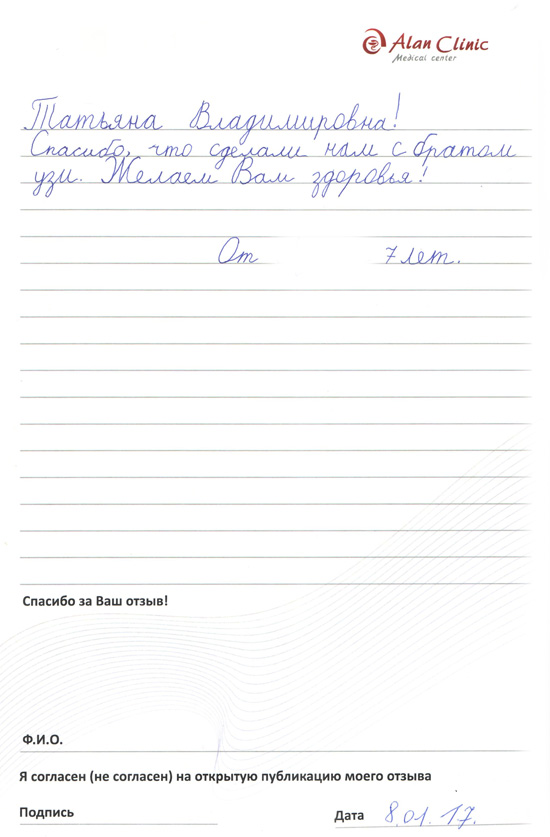 Alan Clinic
Medical center
Татьяна Владимировна!
Спасибо, что сделали нам с братом
узи. Желаем Вам здоровья!
От 7 лет.
Спасибо за Ваш отзыв!
Ф.И.О.
Я согласен (не согласен) на открытую публикацию моего отзыва
Подпись Дата 8.01.17.